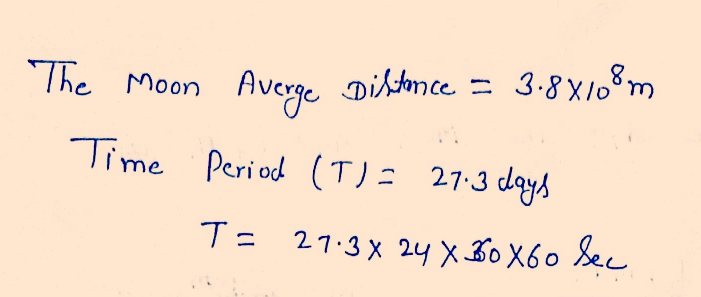 The Moon Averge Distance = 3.8X10⁸m
Time Period (T) = 27.3 days
T = 27.3 X 24 X 60 X60 Sec